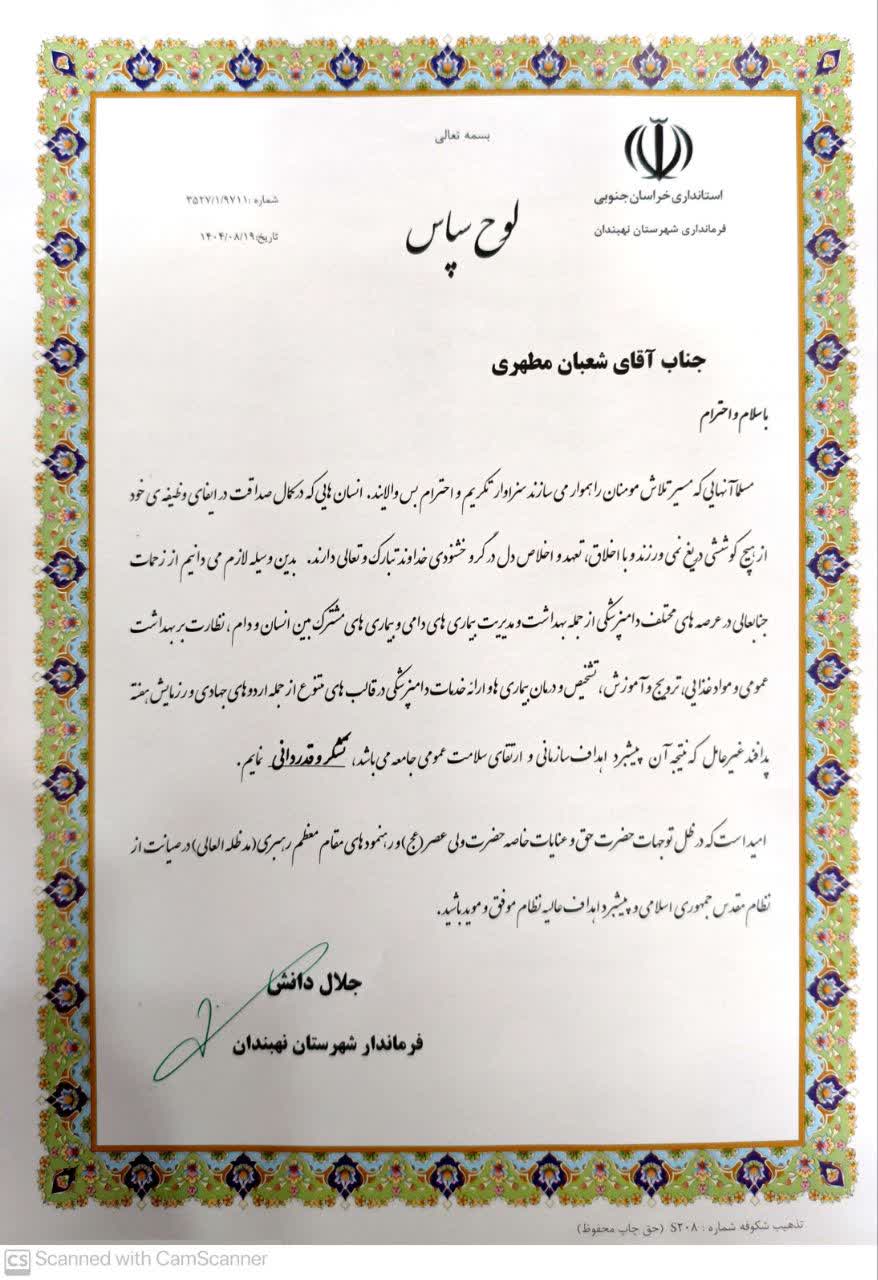 بسمه تعالی
استانداری خراسان جنوبی
فرمانداری شهرستان نهبندان
شماره :۳۵۲۷/۱/۹۷۱۱
تاریخ:۱۴۰۴/۰۸/۱۹
لوح سپاس
جناب آقای شعبان مطهری
باسلام و احترام
مسلما آنهایی که مسیر تلاش مومنان را هموار می سازند سزاوار تکریم و احترام بس والایند. انسان هایی که در کمال صداقت در ایفای وظیفه ی خود
از هیچ کوششی دریغ نمی ورزند و با اخلاق، تعهد و اخلاص دل در گرو خشنودی خداوند تبارک و تعالی دارند. بدین وسیله لازم می دانیم از زحمات
جنابعالی در عرصه های مختلف دامپزشکی از جمله بهداشت و مدیریت بیماری های دامی و بیماری های مشترک بین انسان و دام ، نظارت بر بهداشت
عمومی و مواد غذایی، ترویج و آموزش، تشخیص و درمان بیماری ها و ارائه خدمات دامپزشکی در قالب های متنوع از جمله اردوهای جهادی و رزمایش هفته
پدافند غیرعامل که نتیجه آن پیشبرد اهداف سازمانی و ارتقای سلامت عمومی جامعه می باشد، تشکر و قدردانی نمایم.
امید است که در ظل توجهات حضرت حق و عنایات خاصه حضرت ولی عصر(عج)و رهنمودهای مقام معظم رهبری(مد ظله العالی)در صیانت از
نظام مقدس جمهوری اسلامی و پیشبرد اهداف عالیه نظام موفق و موید باشید.
جلال دانش
فرماندار شهرستان نهبندان
تذهیب شکوفه شماره : S۲۰۸ (حق چاپ محفوظ)
CS Scanned with CamScanner